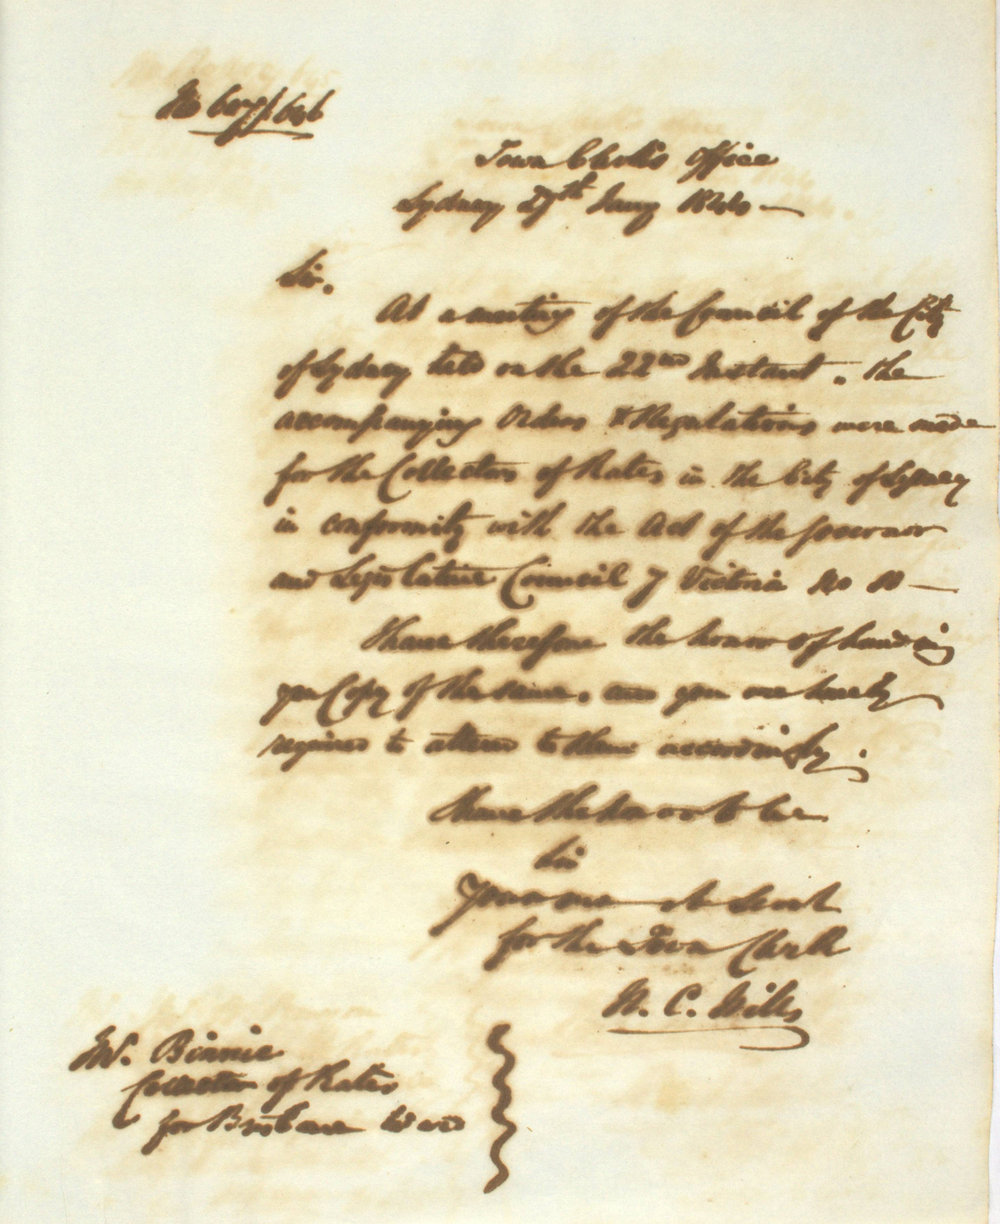 Town Clerk's Office
Sydney 27th Jany 1844 —
Sir.
At a meeting of the Council of the City
of Sydney held on the 22nd Instant, the
accompanying Orders & Regulations were made
for the Collectors of Rates in the City of Sydney
in conformity with the Act of the Governor
and Legislative Council 7 Victoria No
I have therefore the honor of handing
you Copy of the same, and you are hereby
required to attend to them accordingly.
I have the honor to be
Sir
Your
for the Town Clerk
C. Wills
Mr. Binnie
Collector of Rates
for Brisbane Ward